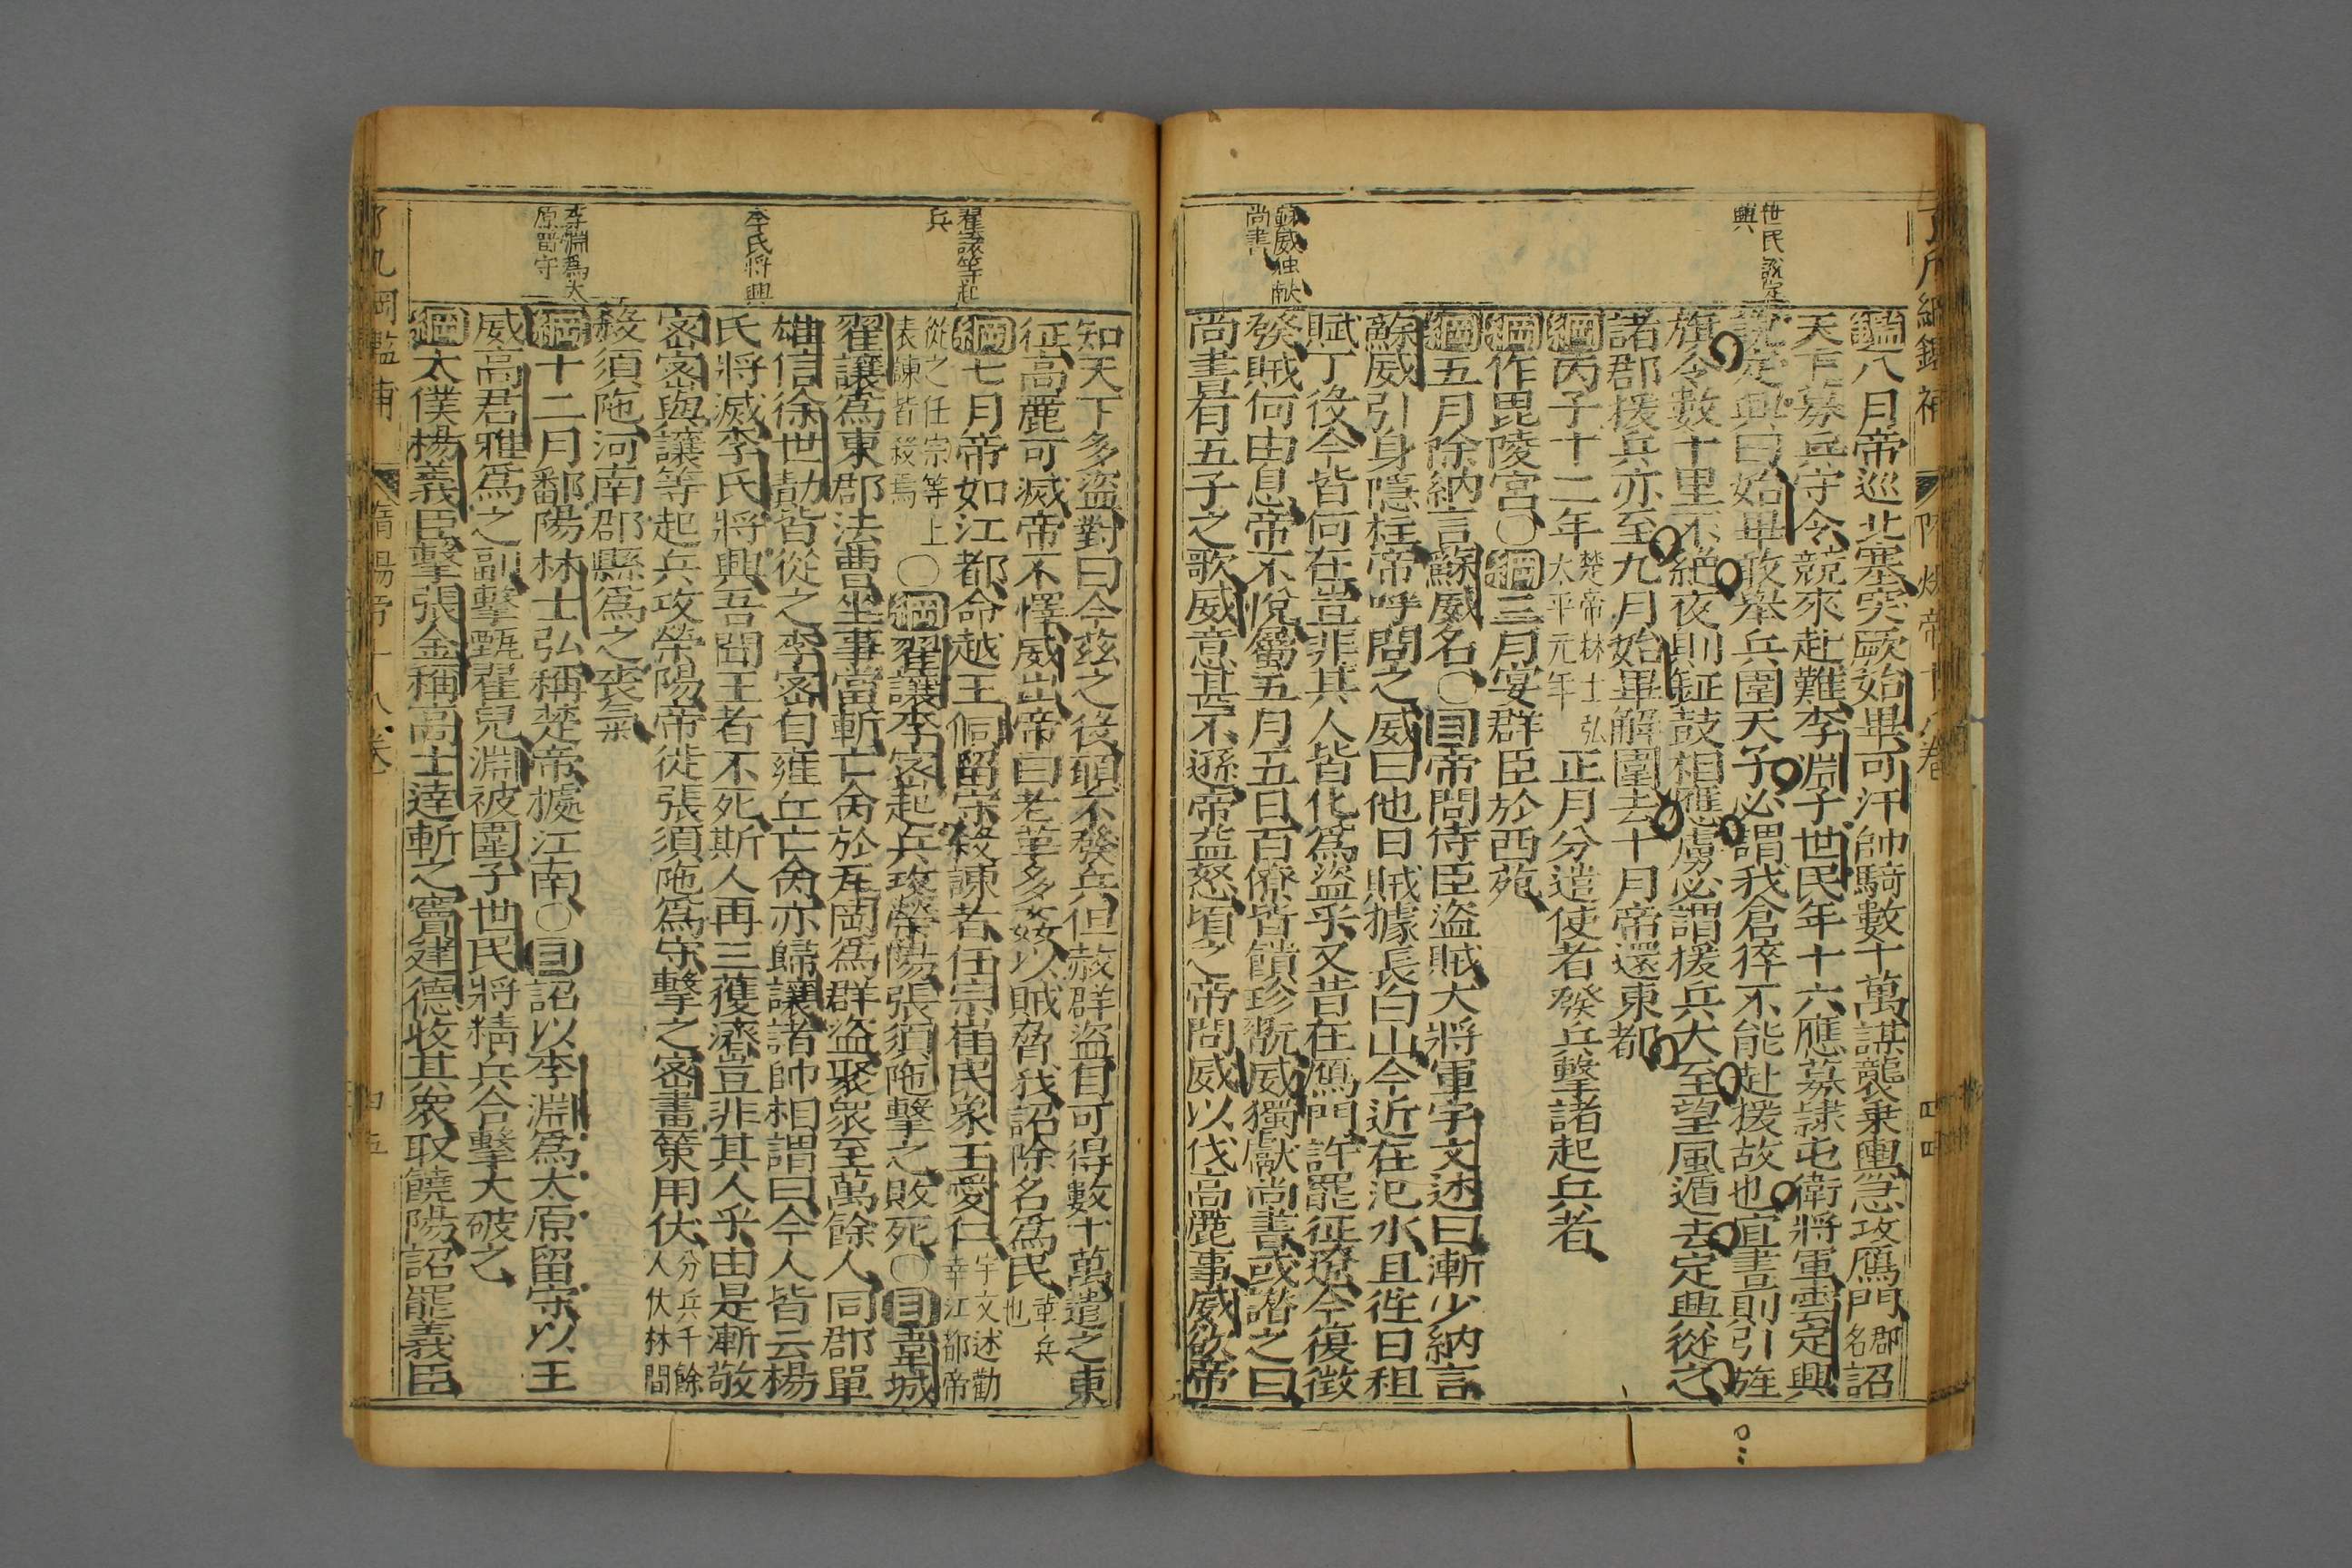 世民說定
興
蘇威独献
尚書
鑑八月帝巡北塞突厥始畢可汗帥騎數十萬謀襲乗輿急攻鴈門郡名詔
天下募兵守令競來赴難李淵子世民年十六應募隷屯衛將軍雲定興
說定興曰始畢敢举兵圍天子必謂我倉猝不能赴援故也宜晝則引旌
旗令數十里不絶夜則鉦鼓相應虜必謂援兵大至望風遁去定興從之
諸郡援兵亦至九月始畢解圍去十月帝還東都
綱丙子十二年楚帝林士弘太平元年正月分遣使者發兵擊諸起兵者
綱作毘陵宮〇綱三月宴群臣於西苑
綱五月除納言蘇威名〇目帝問侍臣盗賊大將軍宇文述曰漸少納言
蘇威引身隠柱帝呼問之威曰他日賊據長白山今近在汜水且徃日租
賦丁役今皆何在豈非其人皆化爲盗乎又昔在鴈門許罷征遼今復徴
發賊何由息帝不悅屬五月五日百僚皆饋珍翫威獨獻尚書或譖之曰
尚書有五子之歌威意甚不遜帝益怒頃之帝問威以伐高麗事威欲帝
四四
翟讓等起
兵
李氏將興
李淵爲太
原留守
知天下多盗對曰今兹之役頣不發兵但赦群盗自可得數十萬遣之東
征高麗可滅帝不懌威出帝曰老革多姦以賊脅我詔除名爲民革兵也
綱七月帝如江都命越王侗留守殺諫者任宗崔民象王愛仁宇文述勸幸江都帝
從之任宗等上表諫皆殺焉〇綱翟讓李密起兵攻滎陽張須陁擊之敗死〇目韋城
翟讓爲東郡法曹坐事當斬亡命於瓦岡爲群盗聚衆至萬餘人同郡單
雄信徐世勣皆從之李密自雍丘亡命亦歸讓諸帥相謂曰今人皆云楊
氏將滅李氏將興吾聞王者不死斯人再三獲濟豈非其人乎由是漸敬
密密與讓等起兵攻滎陽帝徙張須陁爲守擊之密畫策用伏分兵千餘人伏林間
殺須陁河南郡縣爲之喪氣
綱十二月鄱陽林士弘稱楚帝據江南〇目詔以李淵爲太原留守以王
威高君雅爲之副擊甄翟兒淵被圍子世民將精兵合擊大破之
綱太僕楊義臣擊張金稱高士達斬之竇建德收其衆取饒陽詔罷義臣